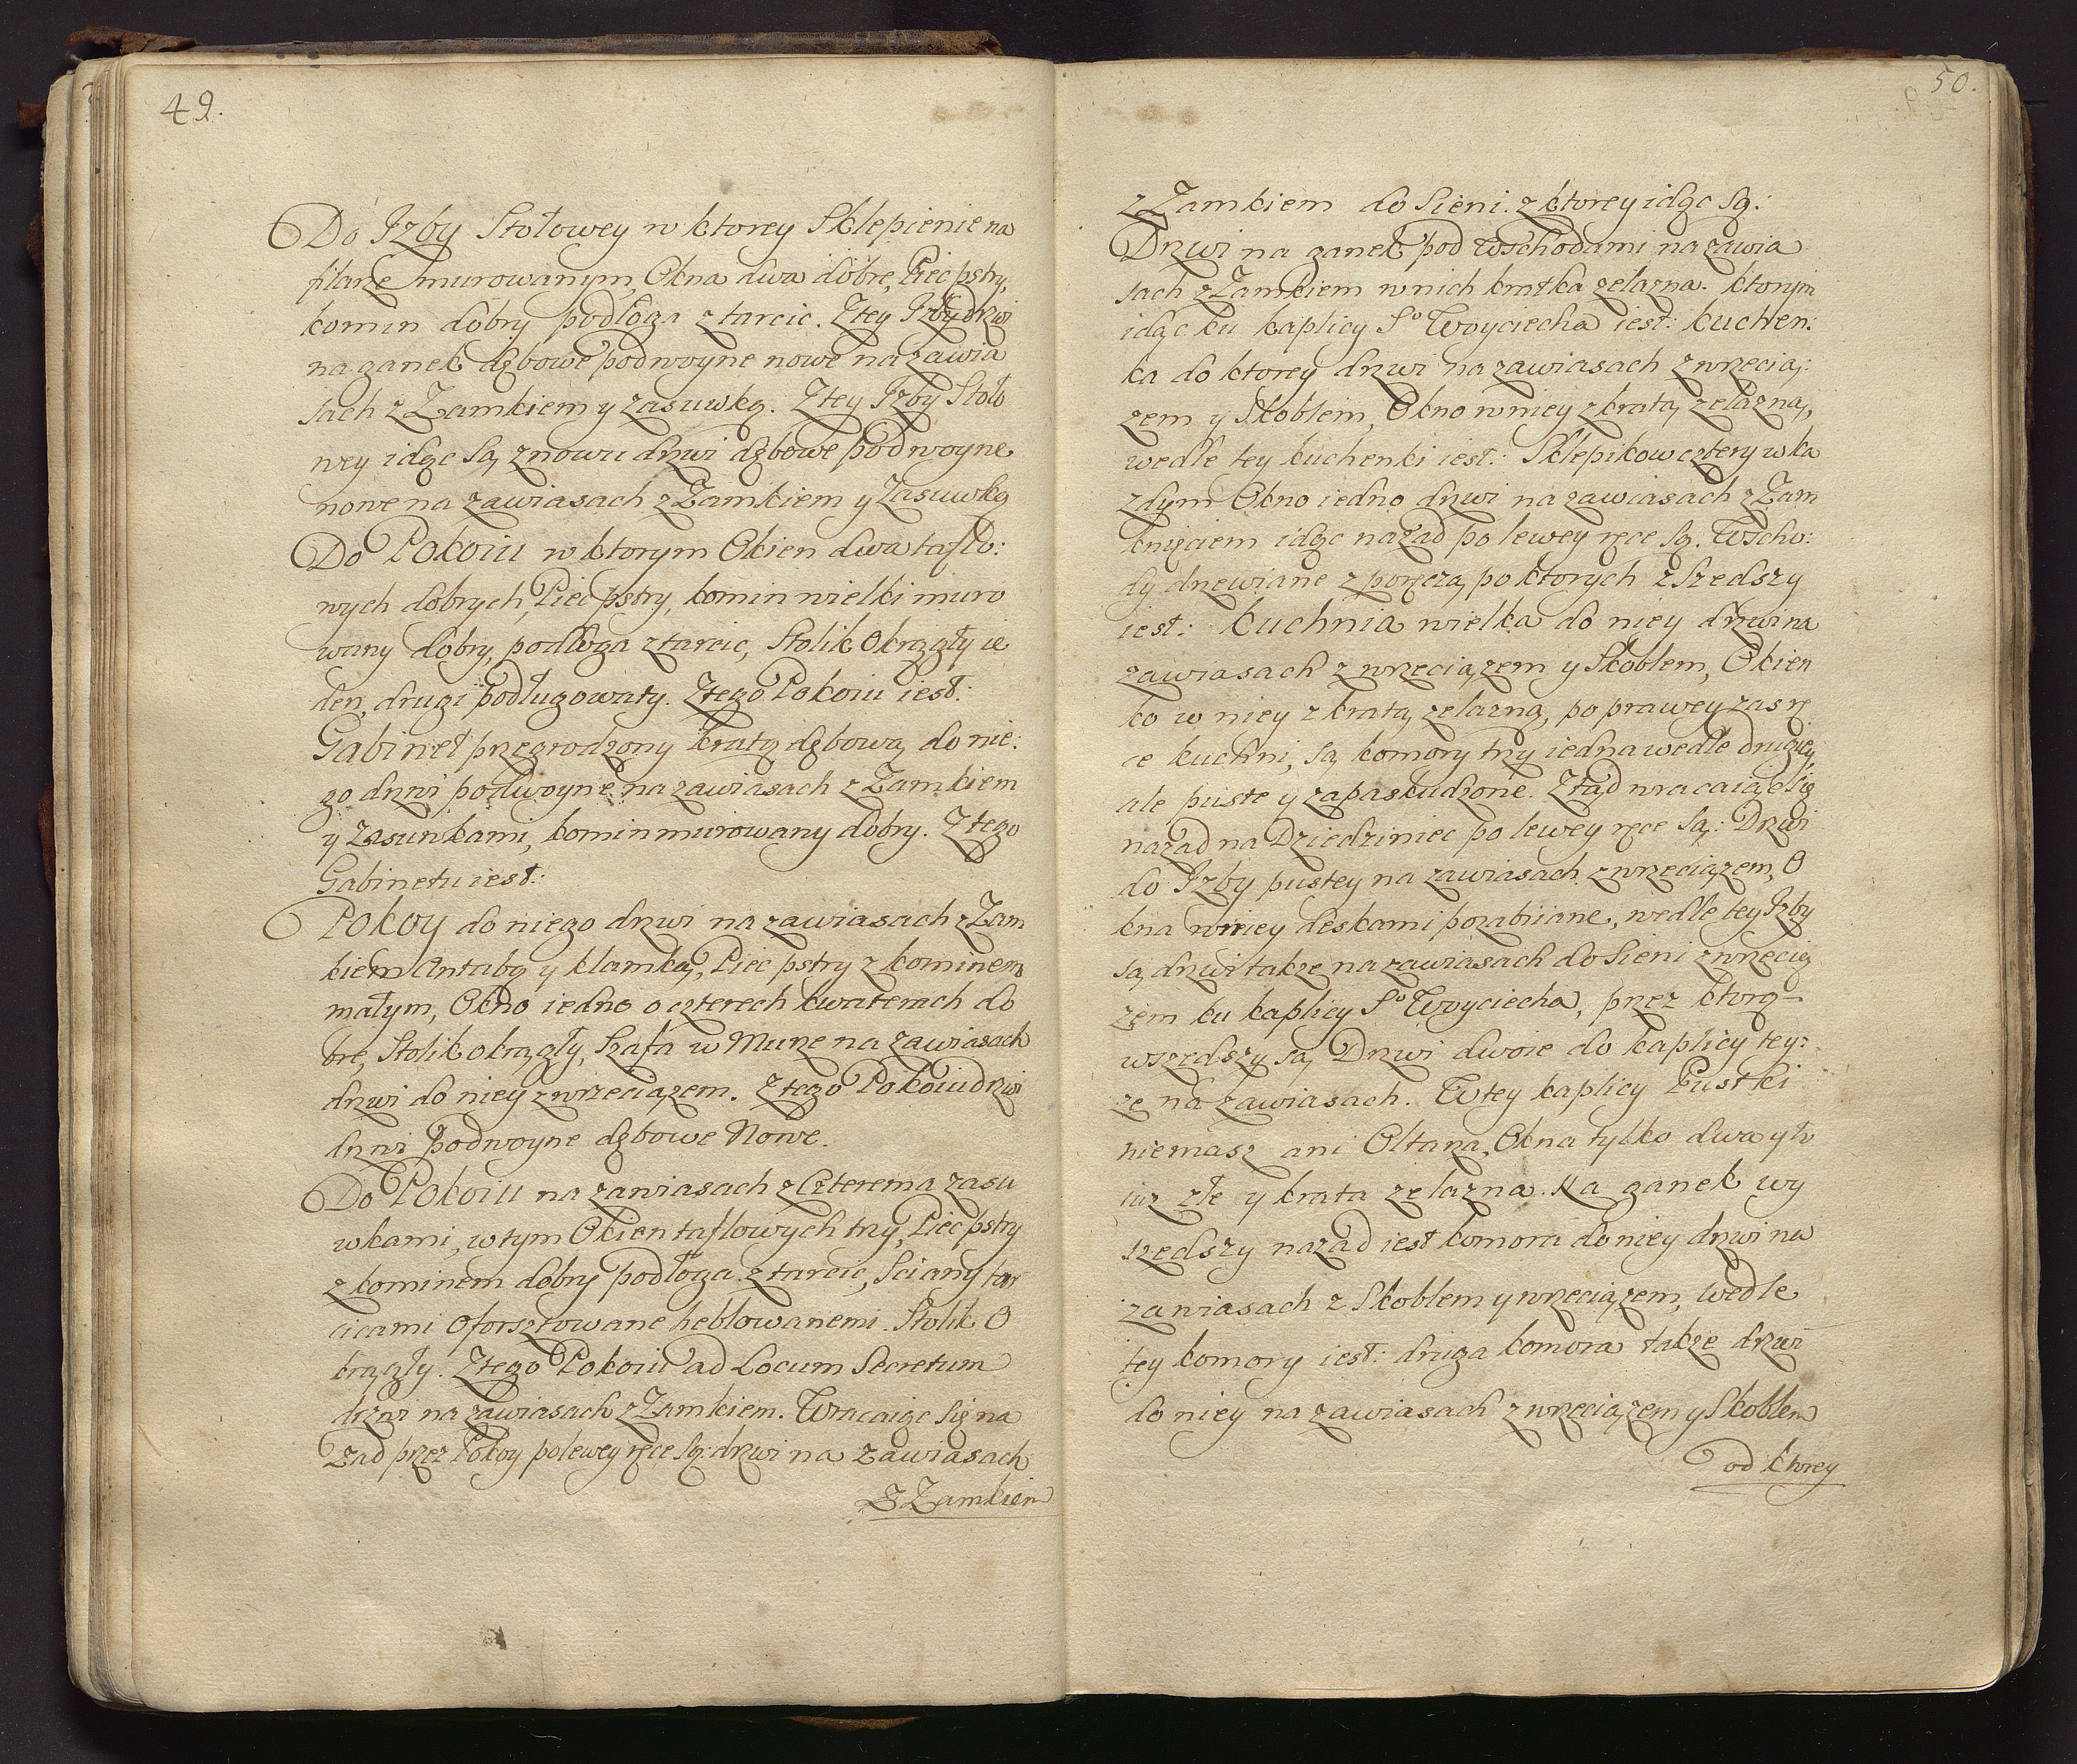 49.
Do Izby Stołowey w ktorey Sklepienie na
filarze murowanym, Okna dwa dobre, Piec pstry,
komin dobry podłoga z tarcic. Z tey Izby drzwi
na ganek dębowe podwoyne nowe na zawia
sach z Zamkiem y zasuwką. Z tey Izby Stoło
wey idąc są znowu drzwi dębowe podwoyne
nowe na zawiasach z Zamkiem y Zasuwką
Do Pokoiu w ktorym Okien dwa taflo:
wych dobrych, Piec pstry, komin wielki muro
wany dobry, podłoga z tarcic, Stolik Okrągły ie
den, drugi podługowaty. Z tego Pokoiu iest:
Gabinet przegrodzony kratą dębową do nie:
go drzwi podwoyne na zawiasach z Zamkiem
y Zasuwkami, komin murowany dobry. Z tego
Gabinetu iest:
Pokoy do niego drzwi na zawiasach z Zam
kiem Antabą y klamką, Piec pstry z kominem
małym, Okno iedno o czterech kwaterach do
bre, Stolik okrągły, Szafa w Murze na zawiasach
drzwi do niey z wrzeciązem. Z tego Pokoiu drzwi
drzwi podwoyne dębowe Nowe.
Do Pokoiu na zawiasach z Czterema zasu
wkami, w tym Okien taflowych trzy, Piec pstry
z kominem dobry podłoga z tarcic, Sciany tar
cicami Oforsztowane heblowanemi. Stolik O
krągły. Z tego Pokoiu ad Locum Secretum
drzwi na zawiasach z Zamkiem. Wracaiąc Się na
zad przez Pokoy po lewey ręce Są: drzwi na zawiasach
z Zamkiem
50.
z Zamkiem do Sieni. z ktorey idąc Są:
Drzwi na ganek pod Wschodami na zawia
sach z Zamkiem w nich kratka zelazna. ktorym
idąc ku kaplicy So Woyciecha iest: kuchen:
ka do ktorey drzwi na zawiasach z wrzecią:
zem y Skoblem, Okno w niey z kratą zelazną,
wedle tey kuchenki iest: Sklepikow cztery w ka
zdym Okno iedno drzwi na zawiasach z Zam
knięciem idąc nazad po lewey ręce Są. Wscho:
dy drzewiane z poręczą po ktorych z Szedszy
iest: kuchnia wielka do niey drzwi na
zawiasach z wrzeciązem y Skoblem, Okien
ko w niey z kratą zelazną, po prawey zas rę
ce kuchni, są komory trzy iedna wedle drugiey,
ale puste y zapaskudzone. Ztąd wracaiąc Się
nazad na Dziedziniec po lewey ręce Są: Drzwi
do Izby pustey na zawiasach z wrzeciązem, O
kna w niey deskami pozabiiane, wedle tey Izby
są drzwi także na zawiasach do Sieni z wrzecią
zem ku kaplicy So Woyciecha, przez ktorą
wszedszy są Drzwi dwoie do kaplicy tey:
ze na zawiasach. W tey kaplicy Pustki
niemasz ani Ołtarza, Okna tylko dwa y to
iuz złe y krata zelazna. Na ganek wy
szedszy nazad iest komora do niey drzwi na
zawiasach z Skoblem y wrzeciązem, wedle
tey komory iest: druga komora także drzwi
do niey na zawiasach z wrzeciązem y Skoblem
od ktorey